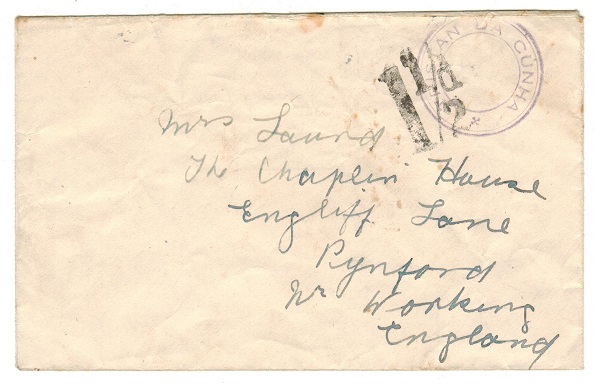 TRISTAN DA CUNHA
1½d
Mrs Laund
The Chaplin House
Engliff Lane
Pynford
Nr Working
England